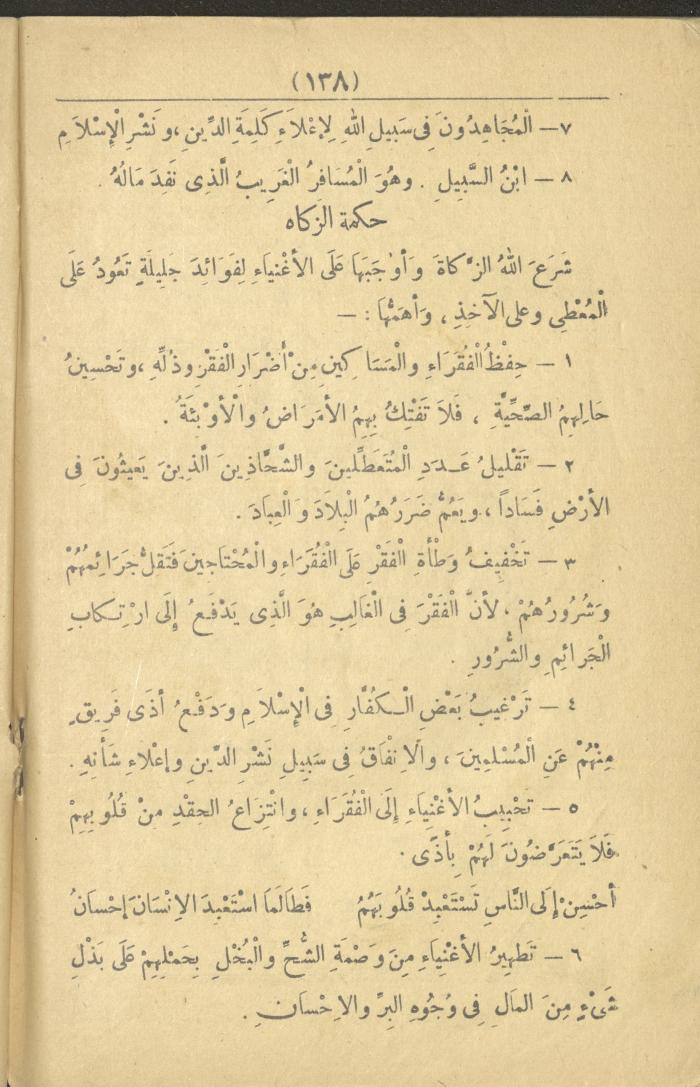 (١٣٨)
٧ — الْمُجَاهِدُونَ فِى سَبِيلِ اللهِ لِإِعْلَاءِ كَلِمَةِ الدِّينِ، وَنَشْرِ الْإِسْلَامِ
٨ — ابْنُ السَّبِيلِ . وهُوَ الْمُسَافِرُ الْغَرِيبُ الَّذِى نَفِدَ مَالُهُ .
حكمة الزكاه
شَرَعَ اللهُ الزَّكَاةَ وَأَوْجَبَهَا عَلَى الأَغْنِيَاءِ لِفَوَائِدَ جَلِيلَةٍ تَعُودُ عَلَى
الْمُعْطِى وعلى الآخِذِ ، وَأَهَمُّهَا : —
١ — حِفْظُ الْفُقَرَاءِ والْمَسَاكِينِ مِنْ أَضْرَارِ الْفَقْرِ وذُلِّهِ ، وتَحْسِينُ
حَالِهِمُ الصِّحِّيَّةِ ، فَلَا تَفْتِكُ بِهِمُ الأَمْرَاضُ والْأَوْبِئَةُ .
٢ — تَقْلِيلُ عَدَدِ الْمُتَعَطِّلِينَ والشَّحَّاذِينَ الَّذِينَ يَعِيثُونَ فِى
الأَرْضِ فَسَاداً ، ويَعُمُّ ضَرَرُهُمُ الْبِلَادَ وَالْعِبَادَ .
٣ — تَخْفِيفُ وَطْأَةِ الْفَقْرِ عَلَى الْفُقَرَاءِ والْمُحْتَاجِينَ فَتَقِلُّ جَرَائِمُهُمْ
وَشُرُورُهُمْ ، لأَنَّ الْفَقْرَ فِى الْغَالِبِ هُوَ الَّذِى يَدْفَعُ إِلَى ارْتِكَابِ
الْجَرَائِمِ والشُّرُورِ .
٤ — تَرْغِيبُ بَعْضِ الْكُفَّارِ فِى الْإِسْلَامِ وَدَفْعُ أَذَى فَرِيقٍ
مِنْهُمْ عَنِ الْمُسْلِمِينَ ، والْاِنْفَاقُ فِى سَبِيلِ نَشْرِ الدِّينِ وإعْلَاءِ شَأْنِهِ .
٥ — تَحْبِيبُ الأَغْنِيَاءِ إِلَى الْفُقَرَاءِ ، وانْتِزَاعُ الحِقْدِ مِنْ قُلُوبِهِمْ
فَلَا يَتَعَرَّضُونَ لَهُمْ بِأَذًى .
أَحْسِنْ إِلَى النَّاسِ تَسْتَعْبِدْ قُلُوبَهُمُ فَطَالَمَا اسْتَعْبَدَ الاِنْسَانَ إِحْسَانُ
٦ — تَطْهِيرُ الأَغْنِيَاءِ مِنَ وَصْمَةِ الشُّحِّ والْبُخْلِ بِحَمْلِهِمْ عَلَى بَذْلِ
شَىْءٍ مِنَ المَالِ فِى وُجُوهِ البِرِّ والاِحْسَانِ .